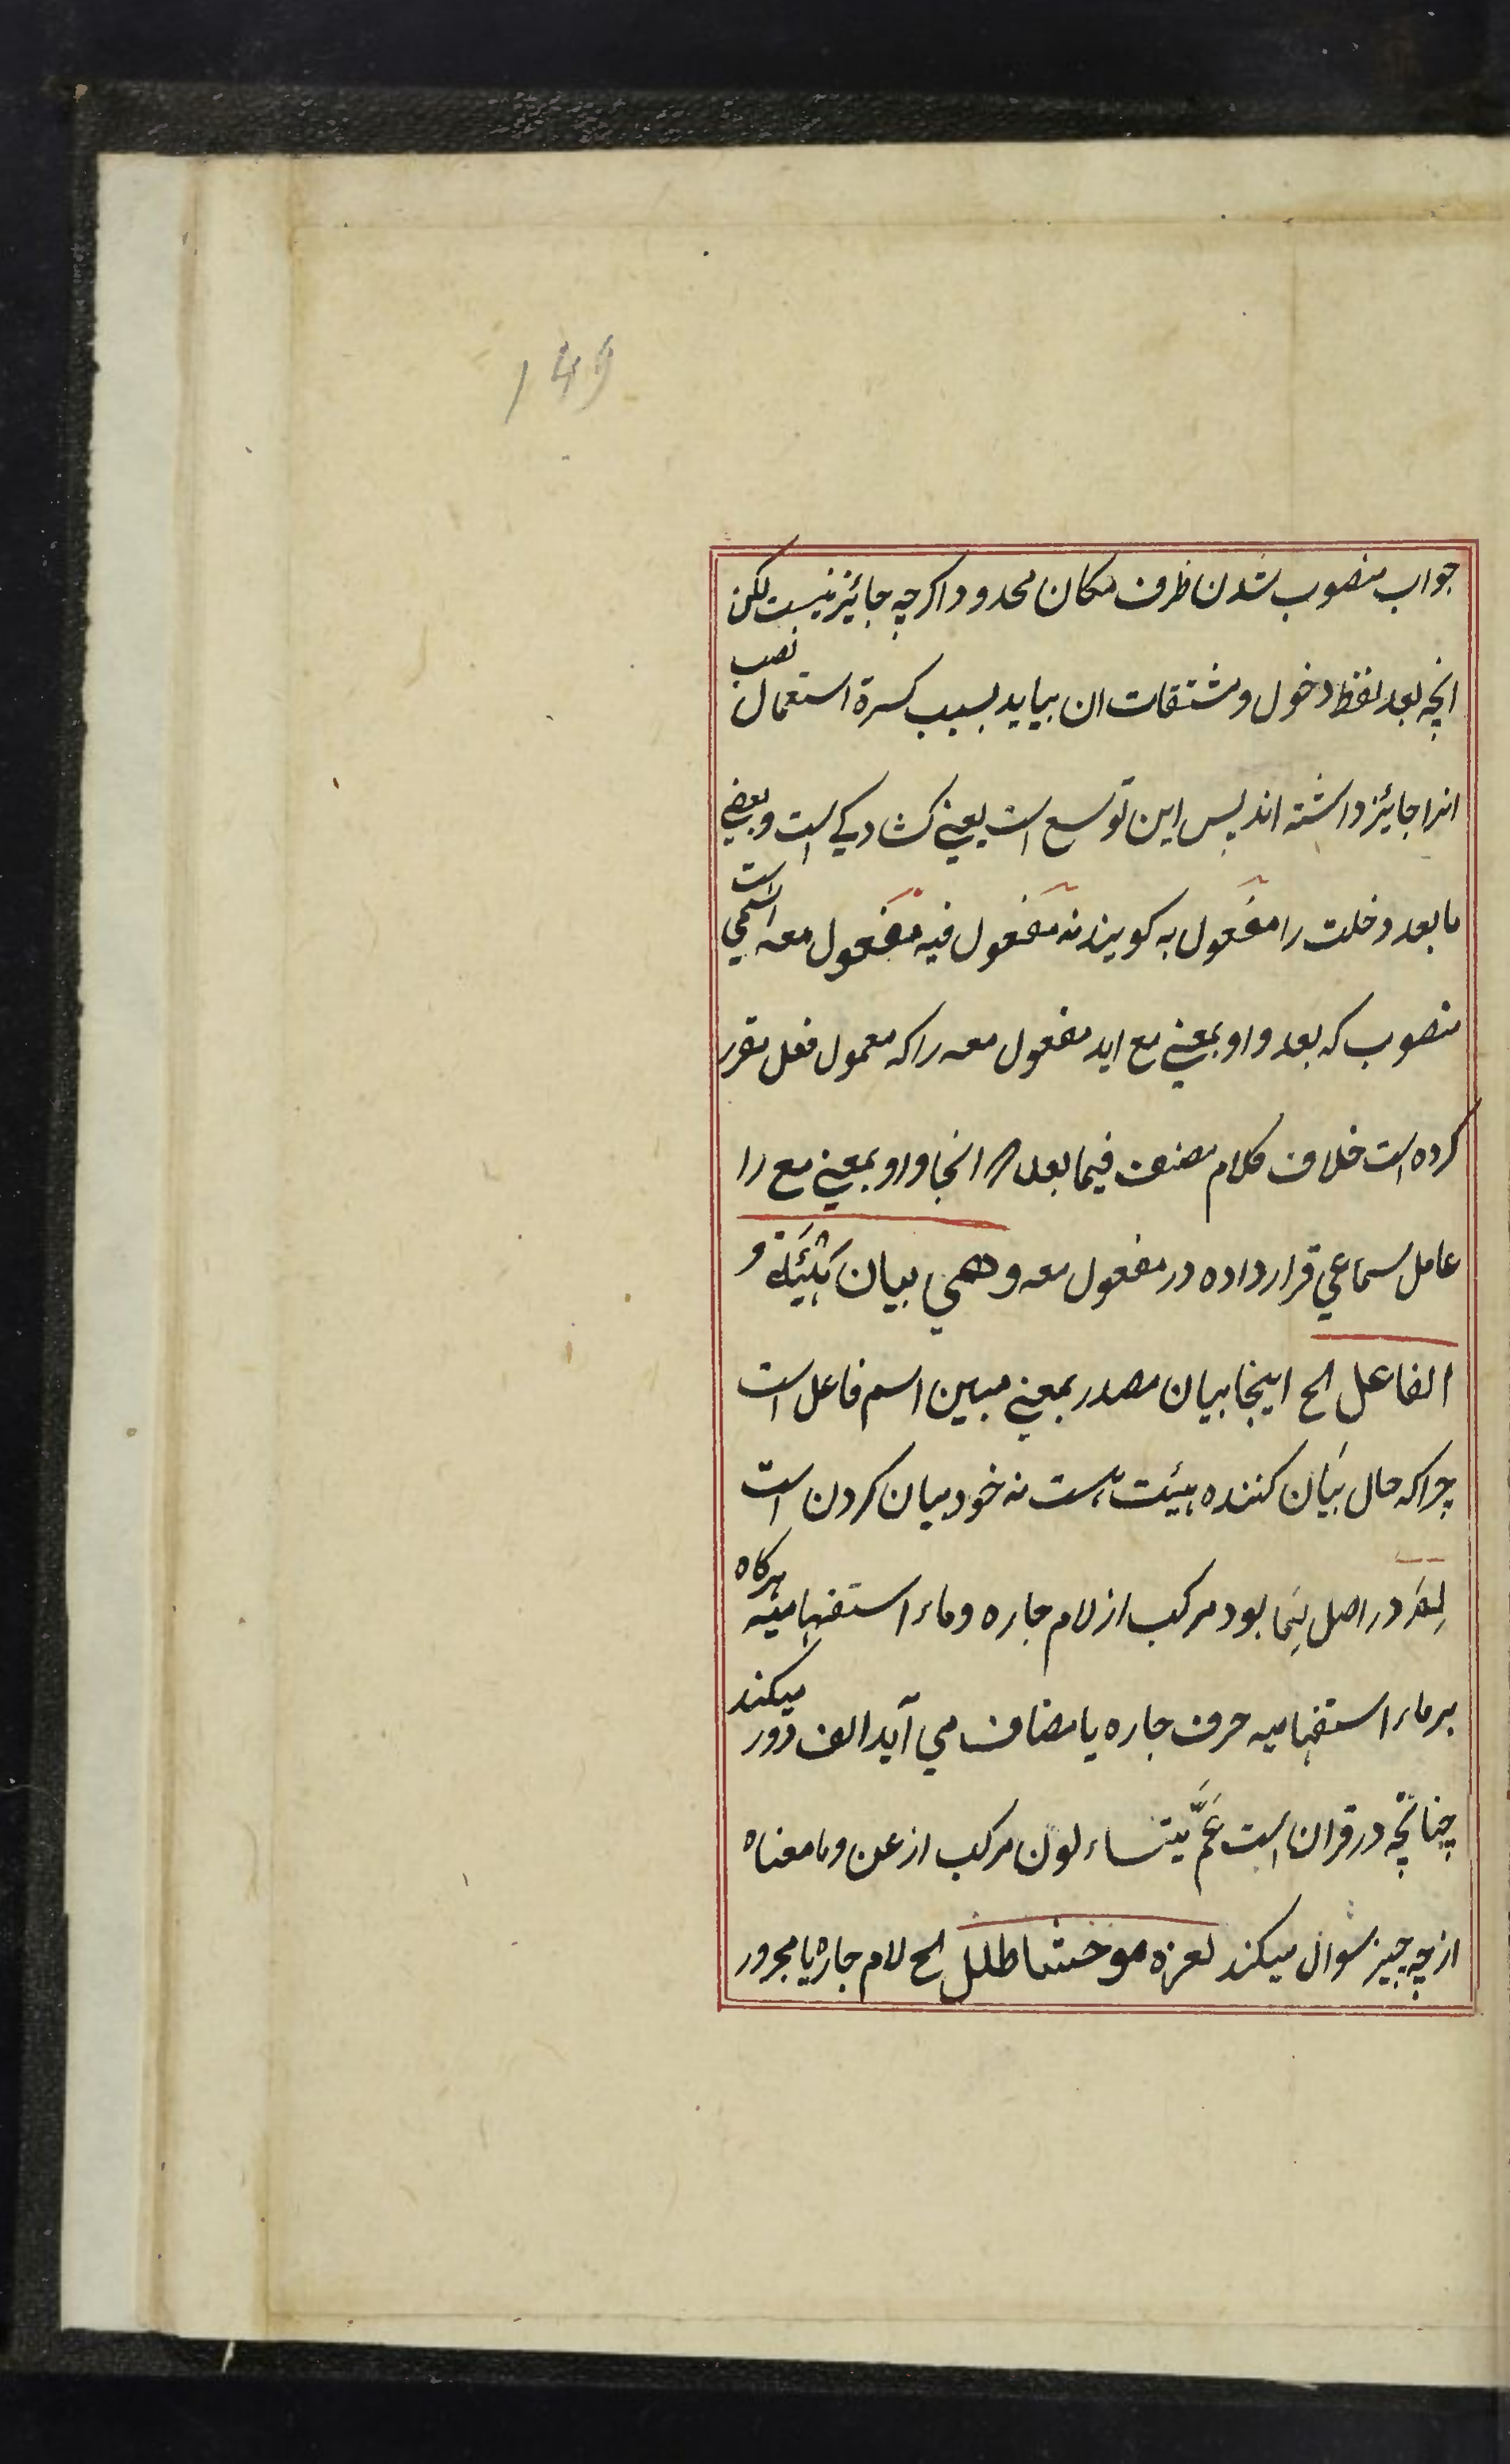 149
جواب منصوب شدن ظرف مکان محدود اکرچه جائیز نیست لکن
انچه بعد لفظ دخول و مشتقات ان بیاید بسبب کسرة استعمال نصب
انرا جائیز داشته اند پس این توسع است یعنے کشادکے است و بعضے
ما بعد دخلت را مفعول به کویند نه مفعول فیه مفعول معه اسمي است
منصوب که بعد واو بمعنے مع اید مفعول معه را که معمول فعل مقرر
کرده است خلاف کلام مصنف فیما بعد انجا واو بمعنے مع را
عامل سماعي قرار داده در مفعول معه و هي بیان هَیْئَةُ
الفاعل الخ اینجا بیان مصدر بمعنے مبین اسم فاعل است
چرا که حال بیان کننده هیئت است نه خود بیان کردن است
لِمَ در اصل لِمَا بود مرکب از لام جاره و ماء استفهامیه هرکاه
بر ماء استفهامیه حرف جاره یا مضاف مي آید الف دور میکند
چنانچه در قران است عَمَّ یتساءلون مرکب از عن و ما معناه
از چه چیز سوال میکند لعزه موحشا طلل الخ لام جاره با مجرور